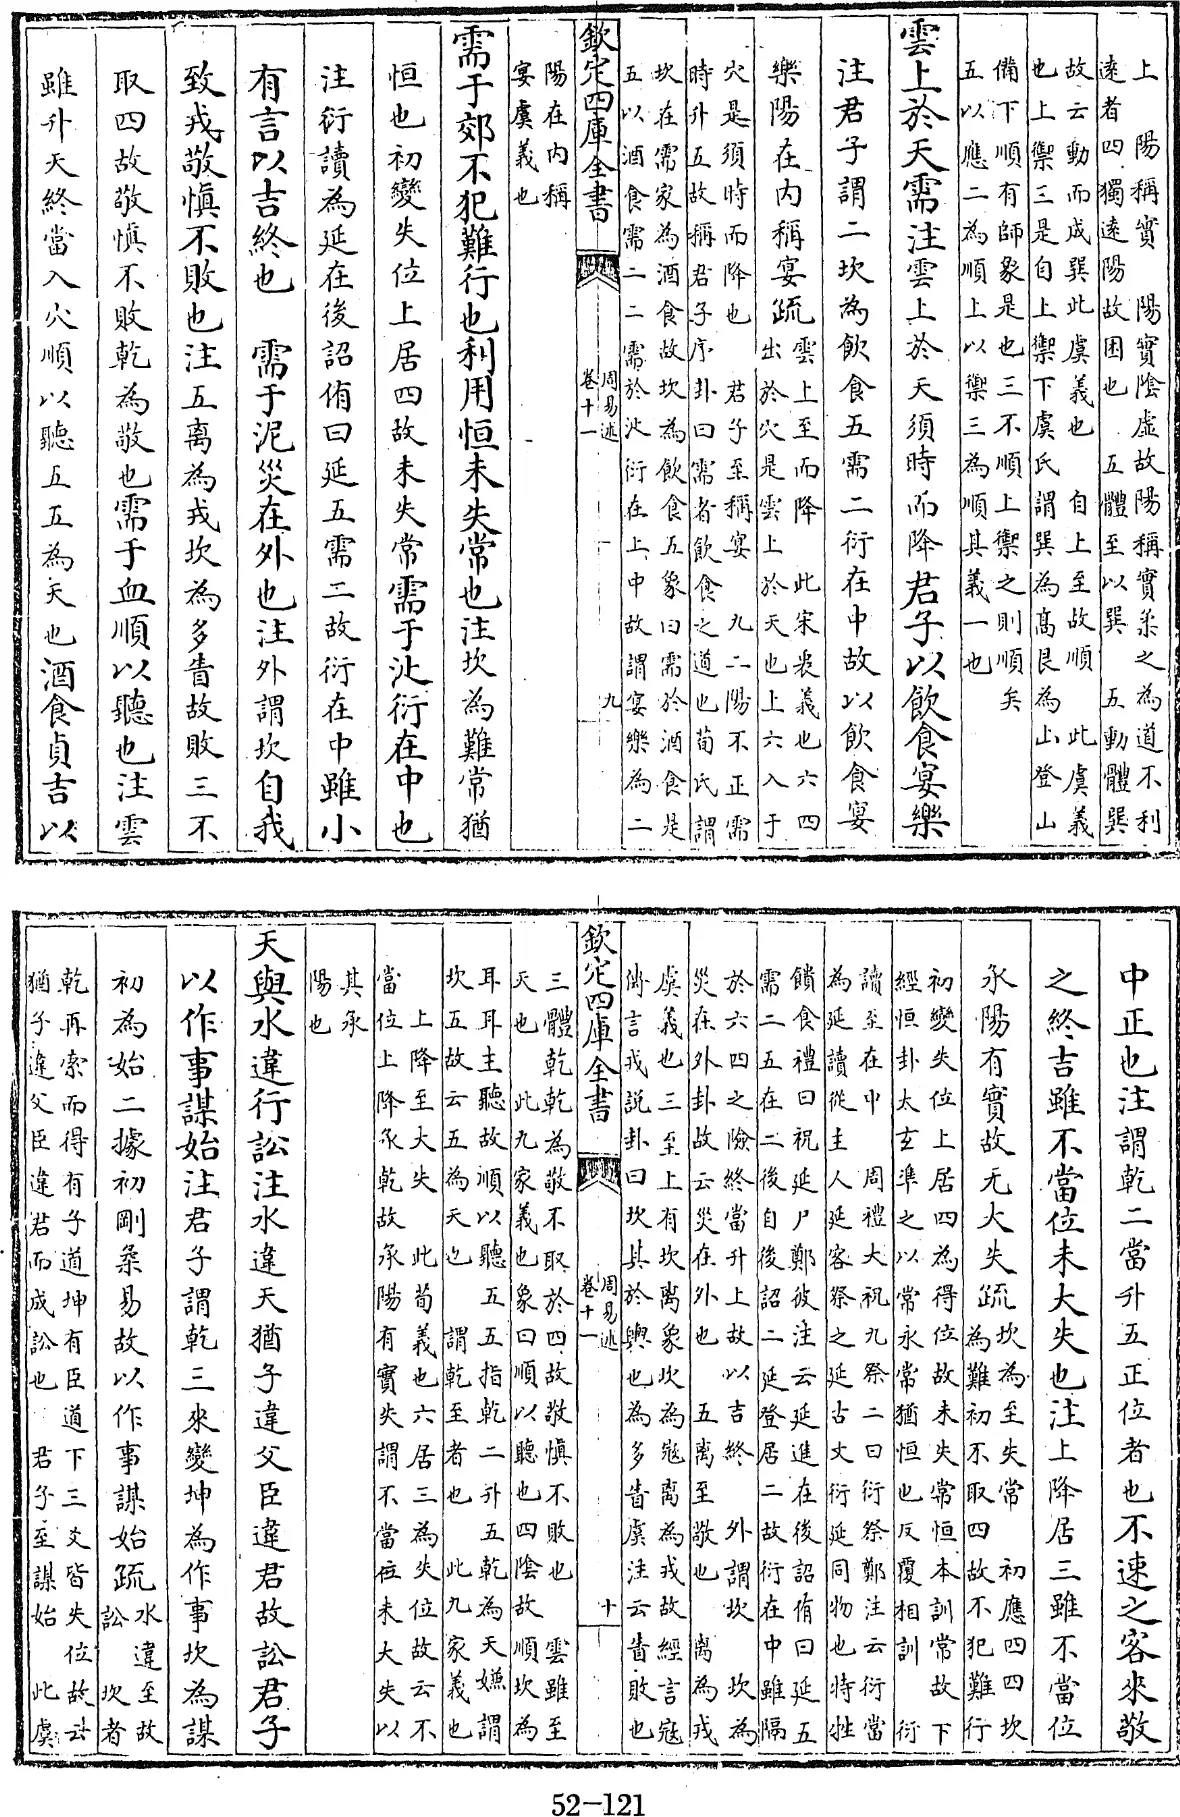 上　陽稱實　陽實陰虛故陽稱實柔之為道不利
遠者四獨遠陽故困也　五體至以巽　五動體巽
故云動而成巽此虞義也　自上至故順　此虞義
也上禦三是自上禦下虞氏謂巽為高艮為山登山
備下順有師象是也三不順上禦之則順矣
五以應二為順上以禦三為順其義一也
雲上於天需注雲上於天須時而降君子以飲食宴樂
注君子謂二坎為飲食五需二衍在中故以飲食宴
樂陽在内稱宴疏
雲上至而降　此宋衷義也六四
出於穴是雲上於天也上六入于
穴是須時而降也　君子至稱宴　九二陽不正需
時升五故稱君子序卦曰需者飲食之道也荀氏謂
坎在需家為酒食故坎為飲食五象曰需於酒食是
五以酒食需二二需於沚衍在上中故謂宴樂為二
欽定四庫全書
周易述
卷十一
九
陽在内稱
宴虞義也
需于郊不犯難行也利用恒未失常也注坎為難常猶
恒也初變失位上居四故未失常需于沚衍在中也
注衍讀為延在後詔侑曰延五需二故衍在中雖小
有言以吉終也　需于泥災在外也注外謂坎自我
致戎敬慎不敗也注五离為戎坎為多眚故敗三不
取四故敬慎不敗乾為敬也需于血順以聽也注雲
雖升天終當入穴順以聽五五為天也酒食貞吉以
中正也注謂乾二當升五正位者也不速之客來敬
之終吉雖不當位未大失也注上降居三雖不當位
承陽有實故无大失疏
坎為至失常　初應四四坎
為難初不取四故不犯難行
初變失位上居四為得位故未失常恒本訓常故下
經恒卦太玄準之以常永常猶恒也反覆相訓　衍
讀至在中　周禮大祝九祭二曰衍祭鄭注云衍當
為延讀從主人延客祭之延古文衍延同物也特牲
饋食禮曰祝延尸鄭彼注云延進在後詔侑曰延五
需二五在二後自後詔二延登居二故衍在中雖隔
於六四之險終當升上故以吉終　外謂坎　坎為
災在外卦故云災在外也　五离至敬也　离為戎
虞義也三至上有坎离象坎為寇离為戎故經言寇
傳言戎說卦曰坎其於輿也為多眚虞注云眚敗也
欽定四庫全書
周易述
卷十一
十
三體乾乾為敬不取於四故敬慎不敗也　雲雖至
天也　此九家義也象曰順以聽也四陰故順坎為
耳耳主聽故順以聽五五指乾二升五乾為天嫌謂
坎五故云五為天也　謂乾至者也　此九家義也
上降至大失　此荀義也六居三為失位故云不
當位上降承乾故承陽有實失謂不當位未大失以
其承
陽也
天與水違行訟注水違天猶子違父臣違君故訟君子
以作事謀始注君子謂乾三來變坤為作事坎為謀
初為始二據初剛柔易故以作事謀始疏
水違至故
訟　坎者
乾再索而得有子道坤有臣道下三爻皆失位故云
猶子違父臣違君而成訟也　君子至謀始　此虞
52-121